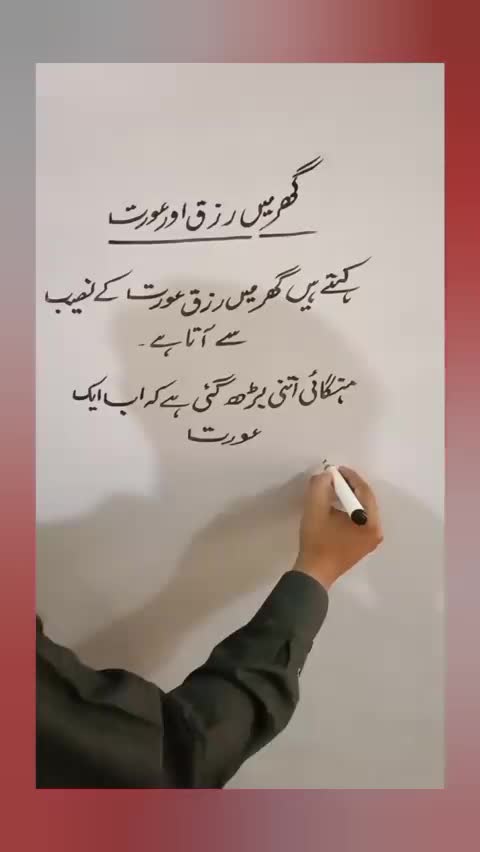 گھر میں رزق اور عورت
کہتے ہیں گھر میں رزق عورت کے نصیب
سے آتا ہے۔
مہنگائی اتنی بڑھ گئی ہے کہ اب ایک
عورت